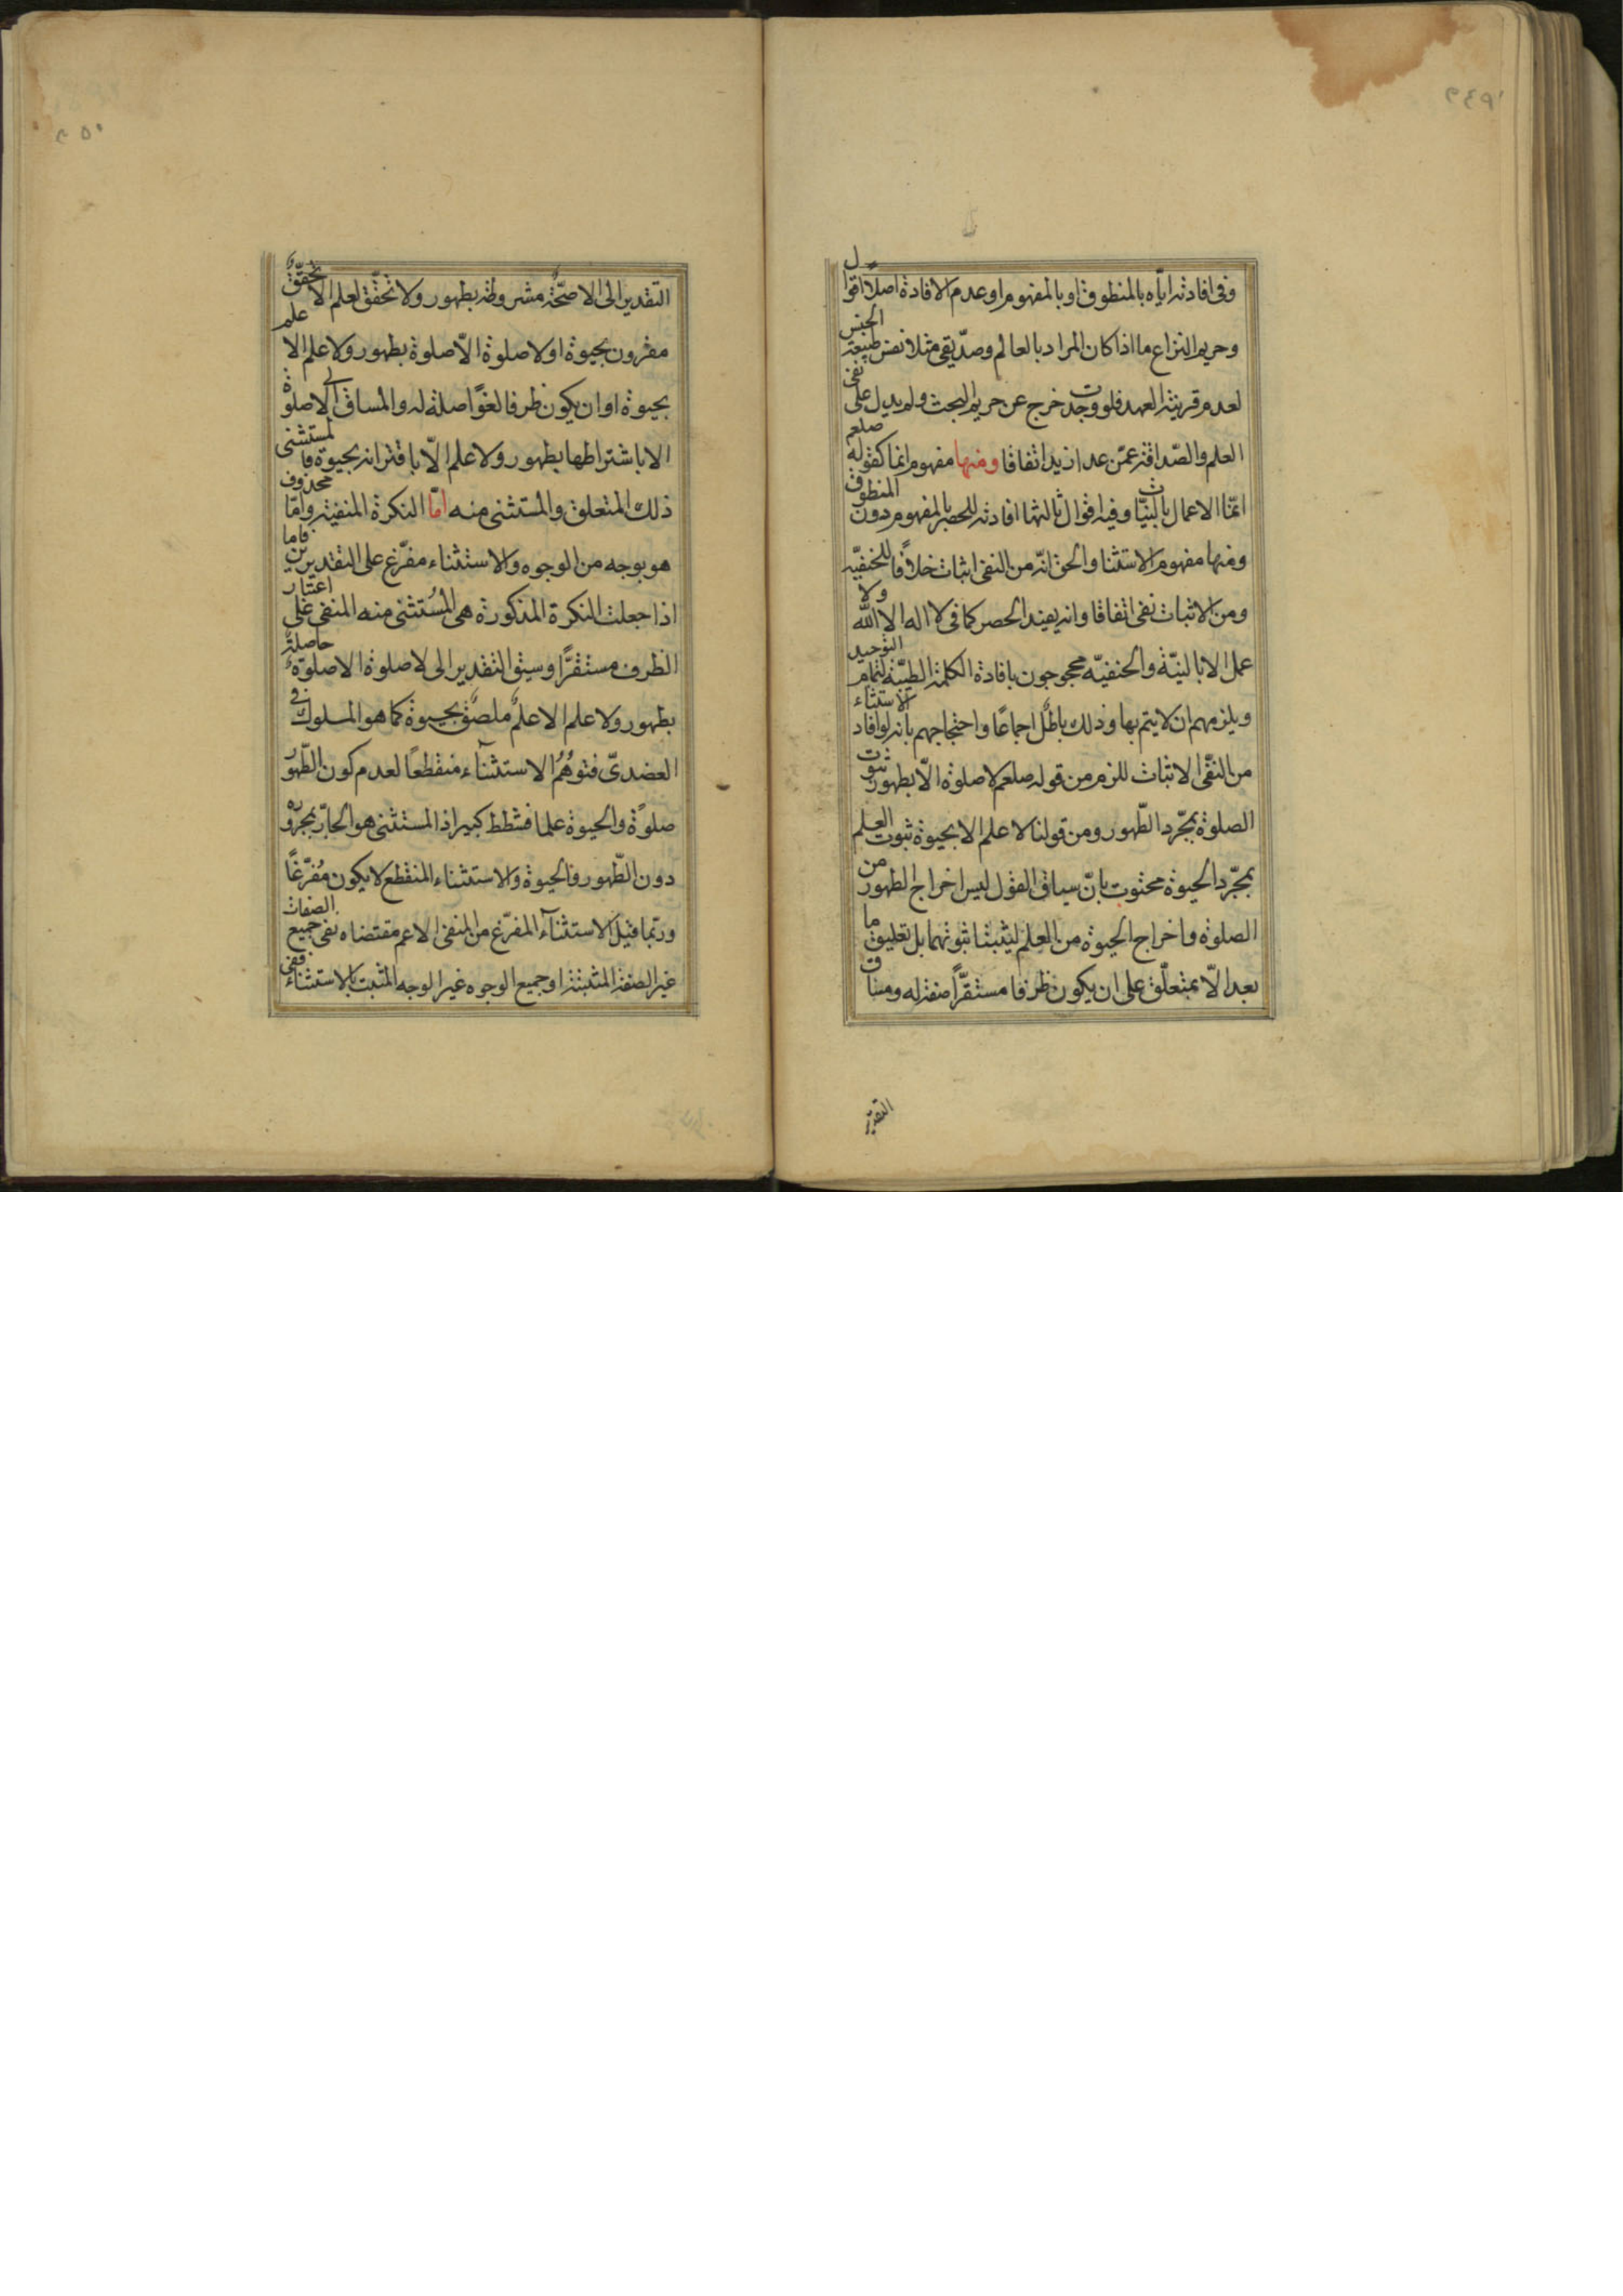 ٢٤٩
وفی افادته ایّاه بالمنطوق او بالمفهوم او عدم الافادة اصلاً اقوال
وحریم النزاع ما اذا کان المراد بالعالم وصدّیقی مثلا نفس طبیعة الجنس
لعدم قرینة العهد فلو وجدت خرج عن حریم البحث ولم یدل علی نفی
العلم والصّداقة عمّن عدا زید اتفاقا ومنها مفهوم انما کقوله صلعم
انمّا الاعمال بالنیّات وفیه اقوال ثالثها افادته للحصر بالمفهوم دون المنطوق
ومنها مفهوم الاستثنا والحق انّه من النفی اثبات خلافًا للحنفیّه
ومن الاثبات نفی اتفاقا وانه یفید الحصر کما فی لا اله الا الله ولا
عمل الا بالنیّة والحنفیّه محجوجون بافادة الکلمة الطیّبة لتمام التوحید
ویلزمهم ان لا یتم بها وذلک باطلٌ اجماعًا واحتجاجهم بانه لو افاد الاستثناء
من النفی الاثبات للزم من قوله صلعم لا صلوة الّا بطهور ثبوت
الصلوة بمجّرد الطّهور ومن قولنا لا علم الا بحیوة ثبوت العلم
بمجّرد الحیوة محثوث بانّ سیاق القول لیس اخراج الطهور من
الصلوة واخراج الحیوة من العلم لیثبتا ثبوتهما بل تعلیق ما
بعد الّا بمتعلّق علی ان یکون ظرفا مستقرًّا صفة له ومساق
التقدیر
٢٥٠
التقدیر الی الا صحّة مشروطة بطهور ولا تحقّق لعلم الا تحقّقٌ
مقرون بحیوة او لا صلوة الّا صلوة بطهور ولا علم الا علم
بحیوة او ان یکون ظرفا لغوًا صلة له والمساق الی لا صلوة
الا باشتراطها بطهور ولا علم الّا باقترانه بحیوة فالمستثنی
ذلک المتعلق والمستثنی منه امّا النکرة المنفیة وامّا محذوف
هو بوجه من الوجوه والاستثناء مفرّغ علی التقدیرین فاما
اذا جعلت النکرة المذکورة هی المستثنی منه المنفی علی اعتبار
الظرف مستقرًّا وسیق التقدیر الی لا صلوة الا صلوةٌ حاصلةٌ
بطهور ولا علم الا علمٌ ملصقٌ بحیوة کما هو المسلوک فی
العضدیّ فتوهّم الاستثنآء منقطعًا لعدم کون الطّهور
صلوةً والحیوة علما فشطط کبیر اذ المستثنی هو الجارّ بمجروره
دون الطّهور والحیوة والاستثناء المنقطع لا یکون مُفرّغًا
وربّما قیل الاستثنآء المفرّغ من المنفی الاعم مقتضاه نفی جمیع الصفات
غیر الصفة المثبتة او جمیع الوجوه غیر الوجه المثبت بالاستثناء ففی